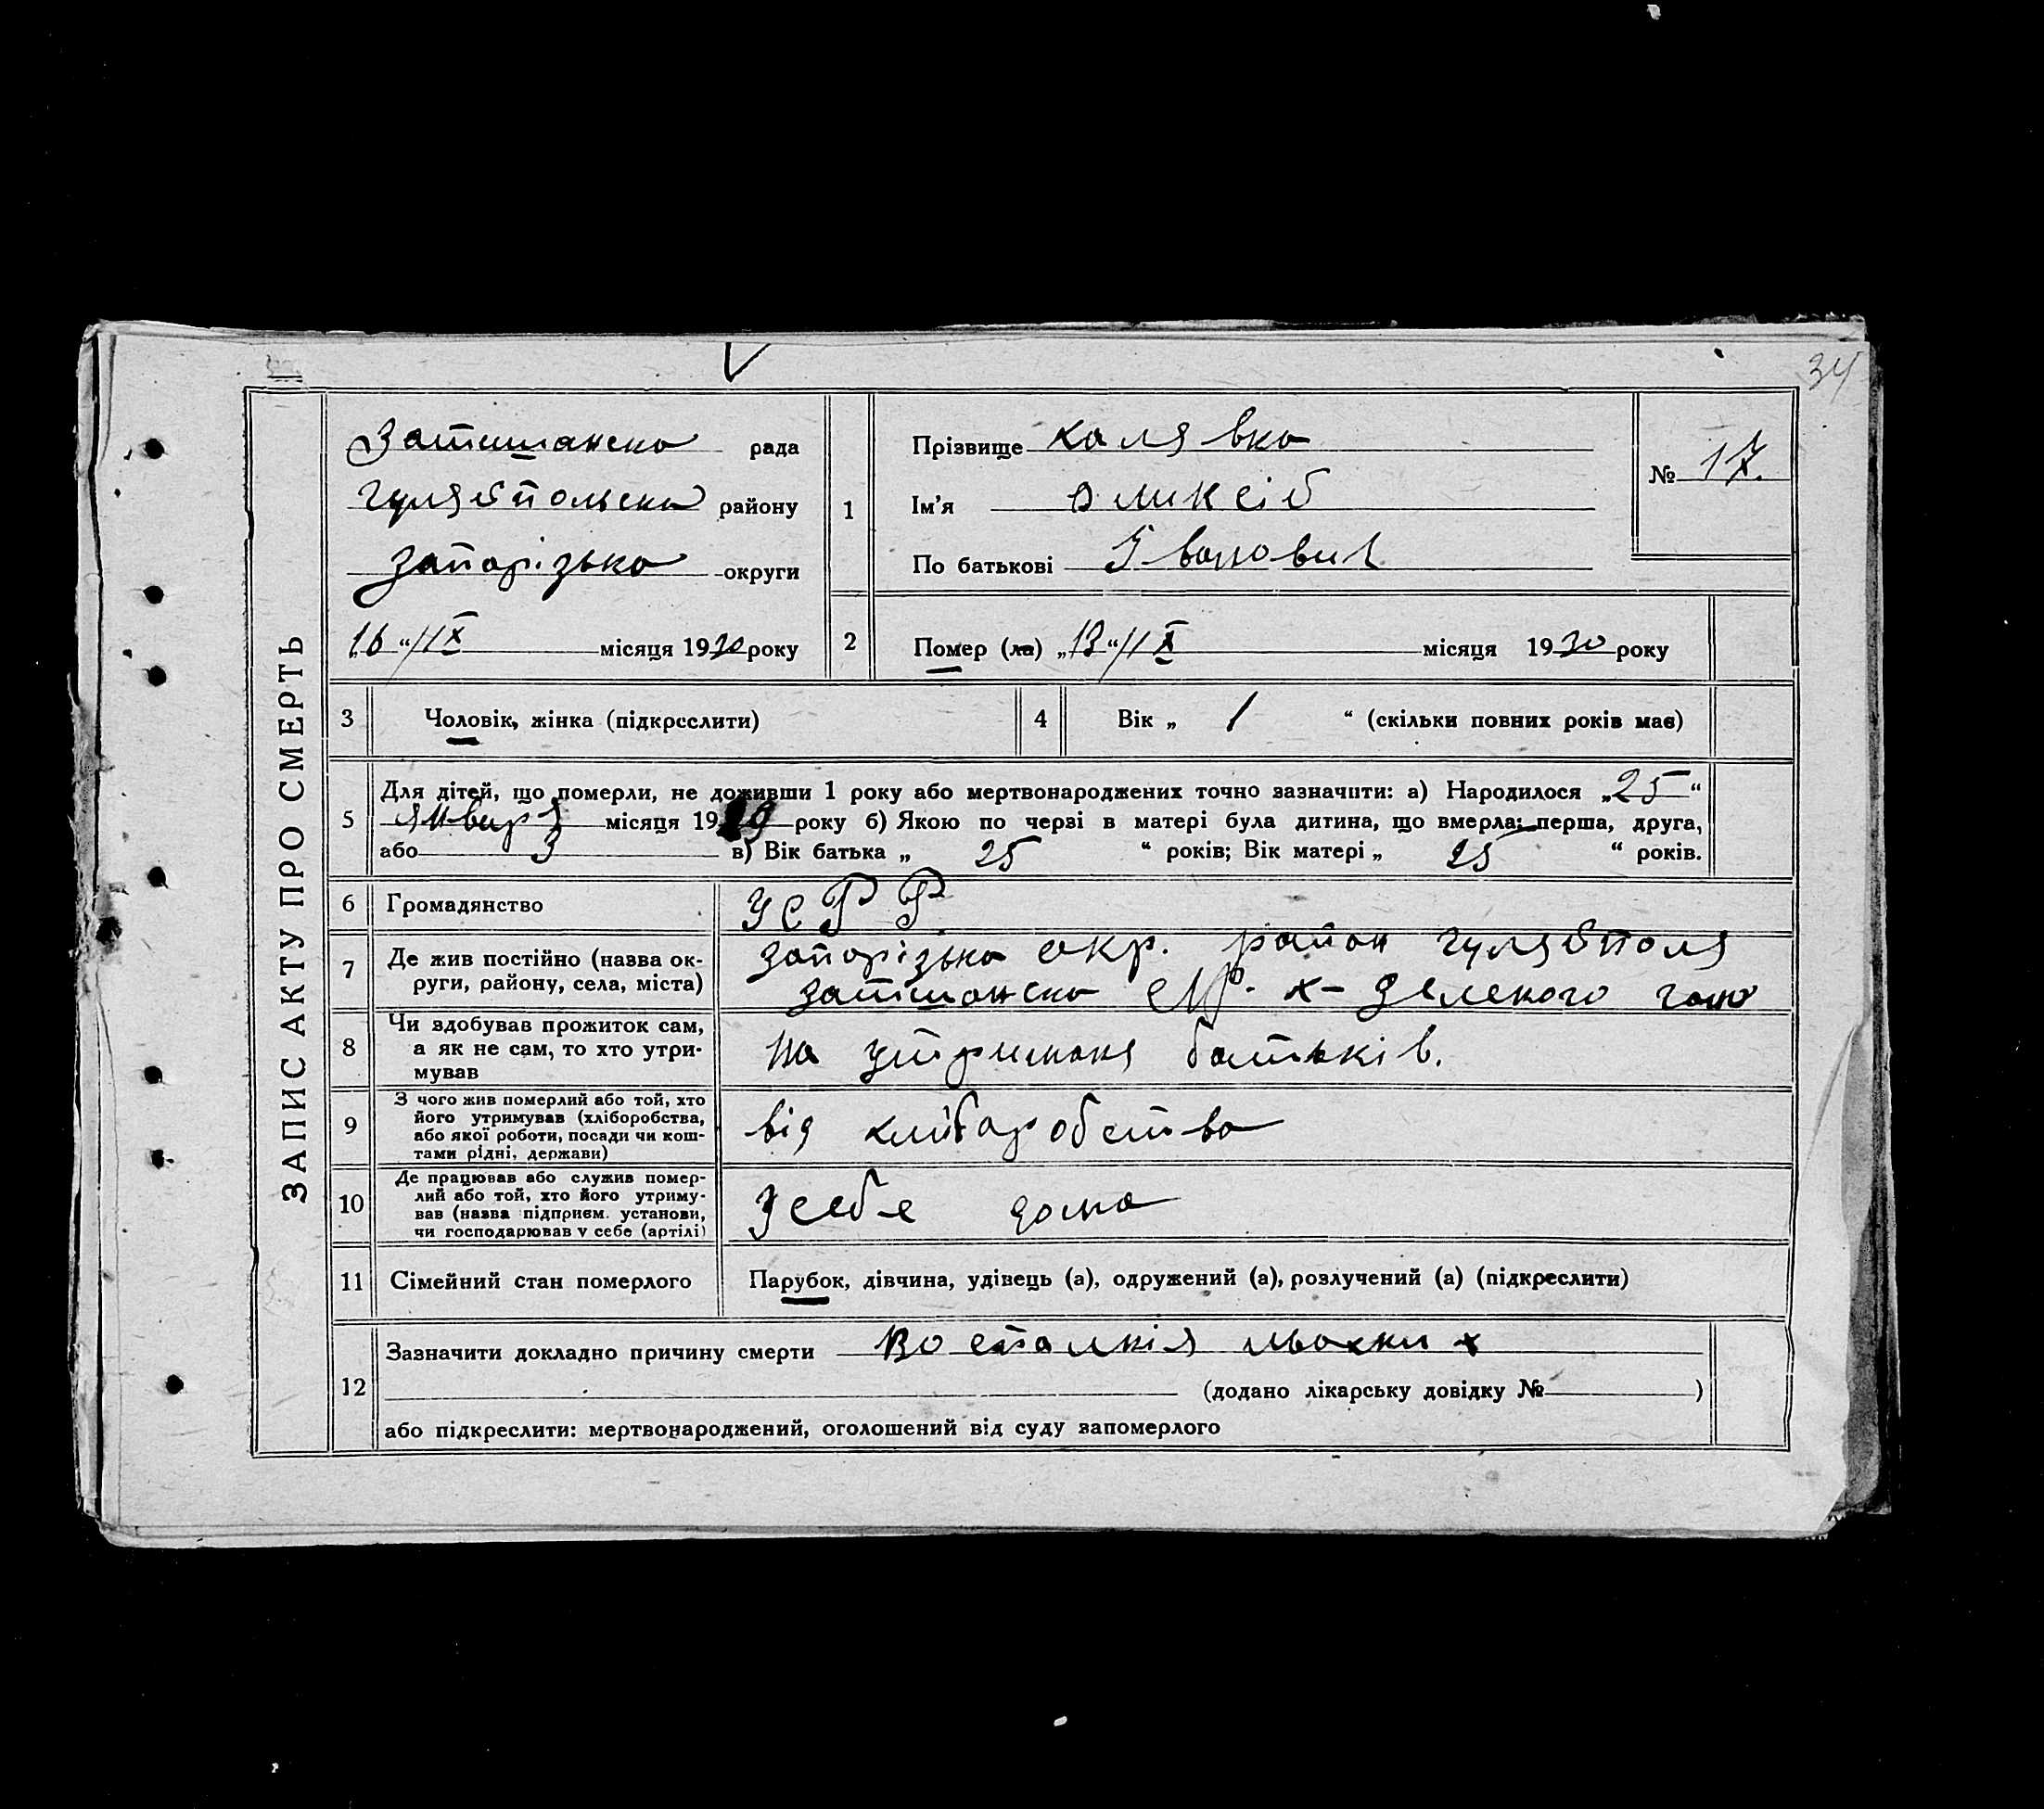 34
ЗАПИС АКТУ ПРО СМЕРТЬ
Затишанско рада
гуляйпольско району
Запорізько округи
„16“ IX місяця 1930 року
1
Прізвище Халявко
Ім'я Оликсій
По батькові Іванович
№ 17.
2
Помер (ла) „13“ IX місяця 1930 року
3 Чоловік, жінка (підкреслити)
4 Вік „ 1 “ (скільки повних років має)
5 Для дітей, що померли, не доживши 1 року або мертвонароджених точно зазначити: а) Народилося „25“
Января місяця 1929 року б) Якою по черзі в матері була дитина, що вмерла: перша, друга,
або 3 в) Вік батька „ 25 “ років; Вік матері „ 25 “ років.
6 Громадянство УСРР
7 Де жив постійно (назва ок-
руги, району, села, міста)
запорізько окр. район гуляйполя
затишанско х- Зеленого гаю
8 Чи здобував прожиток сам,
а як не сам, то хто утри-
мував
на утриманя батьків.
9 З чого жив померлий або той, хто
його утримував (хліборобства,
або якої роботи, посади чи кош-
тами рідні, держави)
від хлібаробства
10 Де працював або служив помер-
лий або той, хто його утриму-
вав (назва підприєм. установи,
чи господарював у себе (артілі)
У себе дома
11 Сімейний стан померлого Парубок, дівчина, удівець (а), одружений (а), розлучений (а) (підкреслити)
12 Зазначити докладно причину смерти
(додано лікарську довідку № )
або підкреслити: мертвонароджений, оголошений від суду запомерлого